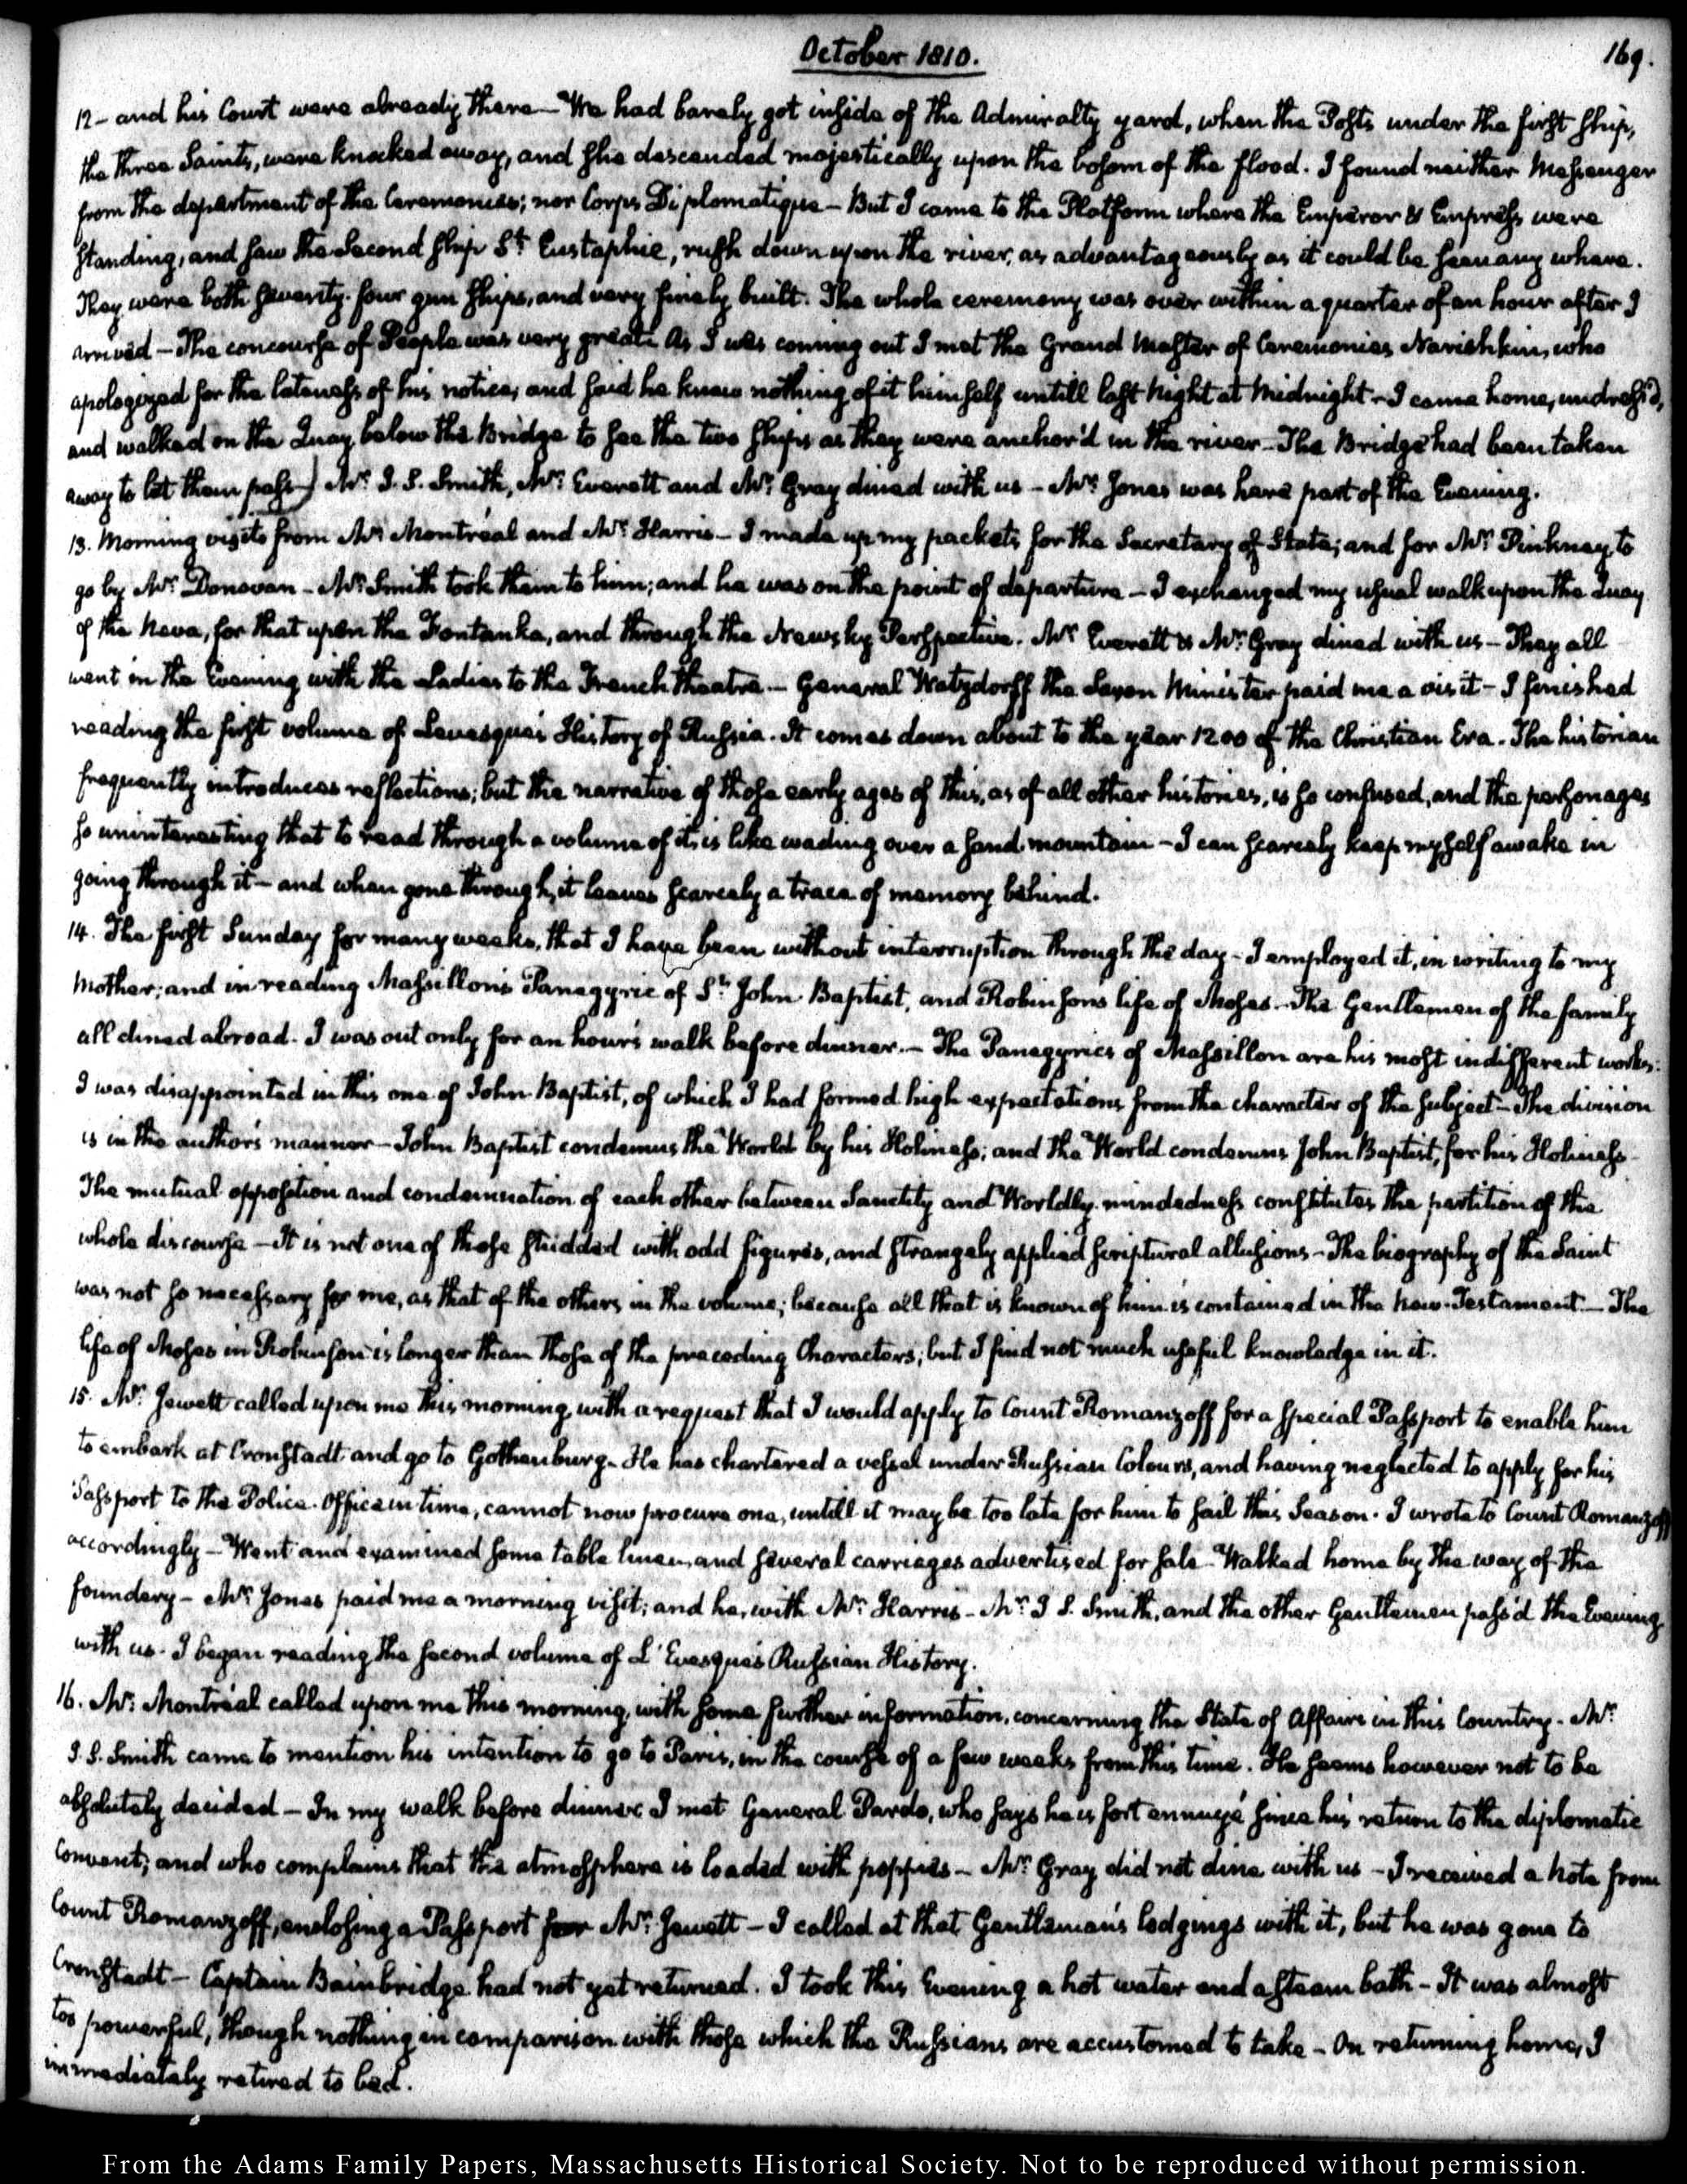 October 1810.
169.
12 - and his Court were already there - We had barely got inside of the Admiralty yard, when the Posts under the first ship,
the three Saints, were knocked away, and she descended majestically upon the bosom of the flood. I found neither Messenger
from the department of the Ceremonies; nor Corps Diplomatique - But I came to the Platform where the Emperor & Empress were
standing, and saw the Second ship St. Eustaphie, rush down upon the river, as advantageously as it could be seen any where.
They were both seventy-four gun ships, and very finely built. The whole ceremony was over within a quarter of an hour after I
arrived - The concourse of People was very great. As I was coming out I met the Grand Master of Ceremonies Narishkin, who
apologized for the lateness of his notice, and said he knew nothing of it himself untill last Night at Midnight - I came home, undress'd,
and walked on the Quay below the Bridge to see the two ships as they were anchor'd in the river - The Bridge had been taken
away to let them pass) Mr. J. S. Smith, Mr. Everett and Mr. Gray dined with us - Mr. Jones was here part of the Evening.
13. Morning visits from Mr. Montréal and Mr. Harris - I made up my packets for the Secretary of State; and for Mr. Pinkney to
go by Mr. Donovan - Mr. Smith took them to him; and he was on the point of departure - I exchanged my usual walk upon the Quay
of the Neva, for that upon the Fontanka, and through the Newsky Perspective. Mr. Everett & Mr. Gray dined with us - They all
went in the Evening with the Ladies to the French Theatre. - General Watzdorff the Saxon Minister paid me a visit - I finished
reading the first volume of Levesque's History of Russia. It comes down about to the year 1200 of the Christian Era. The historian
frequently introduces reflections; but the narrative of those early ages of this, as of all other histories, is so confused, and the personages
so uninteresting that to read through a volume of it, is like wading over a sand mountain - I can scarcely keep myself awake in
going through it - and when gone through, it leaves scarcely a trace of memory behind.
14. The first Sunday for many weeks, that I have been without interruption through the day - I employed it, in writing to my
Mother; and in reading Massillon's Panegyric of St. John Baptist, and Robinson's life of Moses. The Gentlemen of the family
all dined abroad. I was out only for an hour's walk before dinner. - The Panegyrics of Massillon are his most indifferent works:
I was disappointed in this one of John Baptist, of which I had formed high expectations from the character of the subject - The division
is in the author's manner - John Baptist condemns the World by his Holiness; and the World condemns John Baptist, for his Holiness -
The mutual opposition and condemnation of each other between Sanctity and Worldly-mindedness constitutes the partition of the
whole discourse - It is not one of those studded with odd figures, and strangely applied scriptural allusions - The biography of the Saint
was not so necessary for me, as that of the others in the volume; because all that is known of him is contained in the New-Testament. - The
life of Moses in Robinson is longer than those of the preceding Characters; but I find not much useful knowledge in it.
15. Mr. Jewett called upon me this morning, with a request that I would apply to Count Romanzoff for a special Passport to enable him
to embark at Cronstadt and go to Gothenburg - He has chartered a vessel under Russian Colours, and having neglected to apply for his
Passport to the Police-Office in time, cannot now procure one, untill it may be too late for him to sail this Season. I wrote to Count Romanzoff
accordingly - Went and examined some table linen, and several carriages advertised for sale - Walked home by the way of the
foundery - Mr. Jones paid me a morning visit; and he, with Mr. Harris - Mr. J. S. Smith, and the other Gentlemen pass'd the Evening
with us. I began reading the second volume of L'Evesque's Russian History.
16. Mr. Montréal called upon me this morning, with some further information, concerning the State of Affairs in this Country. Mr.
J. S. Smith came to mention his intention to go to Paris, in the course of a few weeks from this time. He seems however not to be
absolutely decided - In my walk before dinner I met General Pardo, who says he is fort ennuyé since his return to the diplomatic
Convent; and who complains that the atmosphere is loaded with poppies - Mr. Gray did not dine with us - I received a Note from
Count Romanzoff, enclosing a Passport for Mr. Jewett - I called at that Gentleman's lodgings with it, but he was gone to
Cronstadt - Captain Bainbridge had not yet returned. I took this Evening a hot water and a steam bath - It was almost
too powerful, though nothing in comparison with those which the Russians are accustomed to take - On returning home, I
immediately retired to bed.
From the Adams Family Papers, Massachusetts Historical Society. Not to be reproduced without permission.